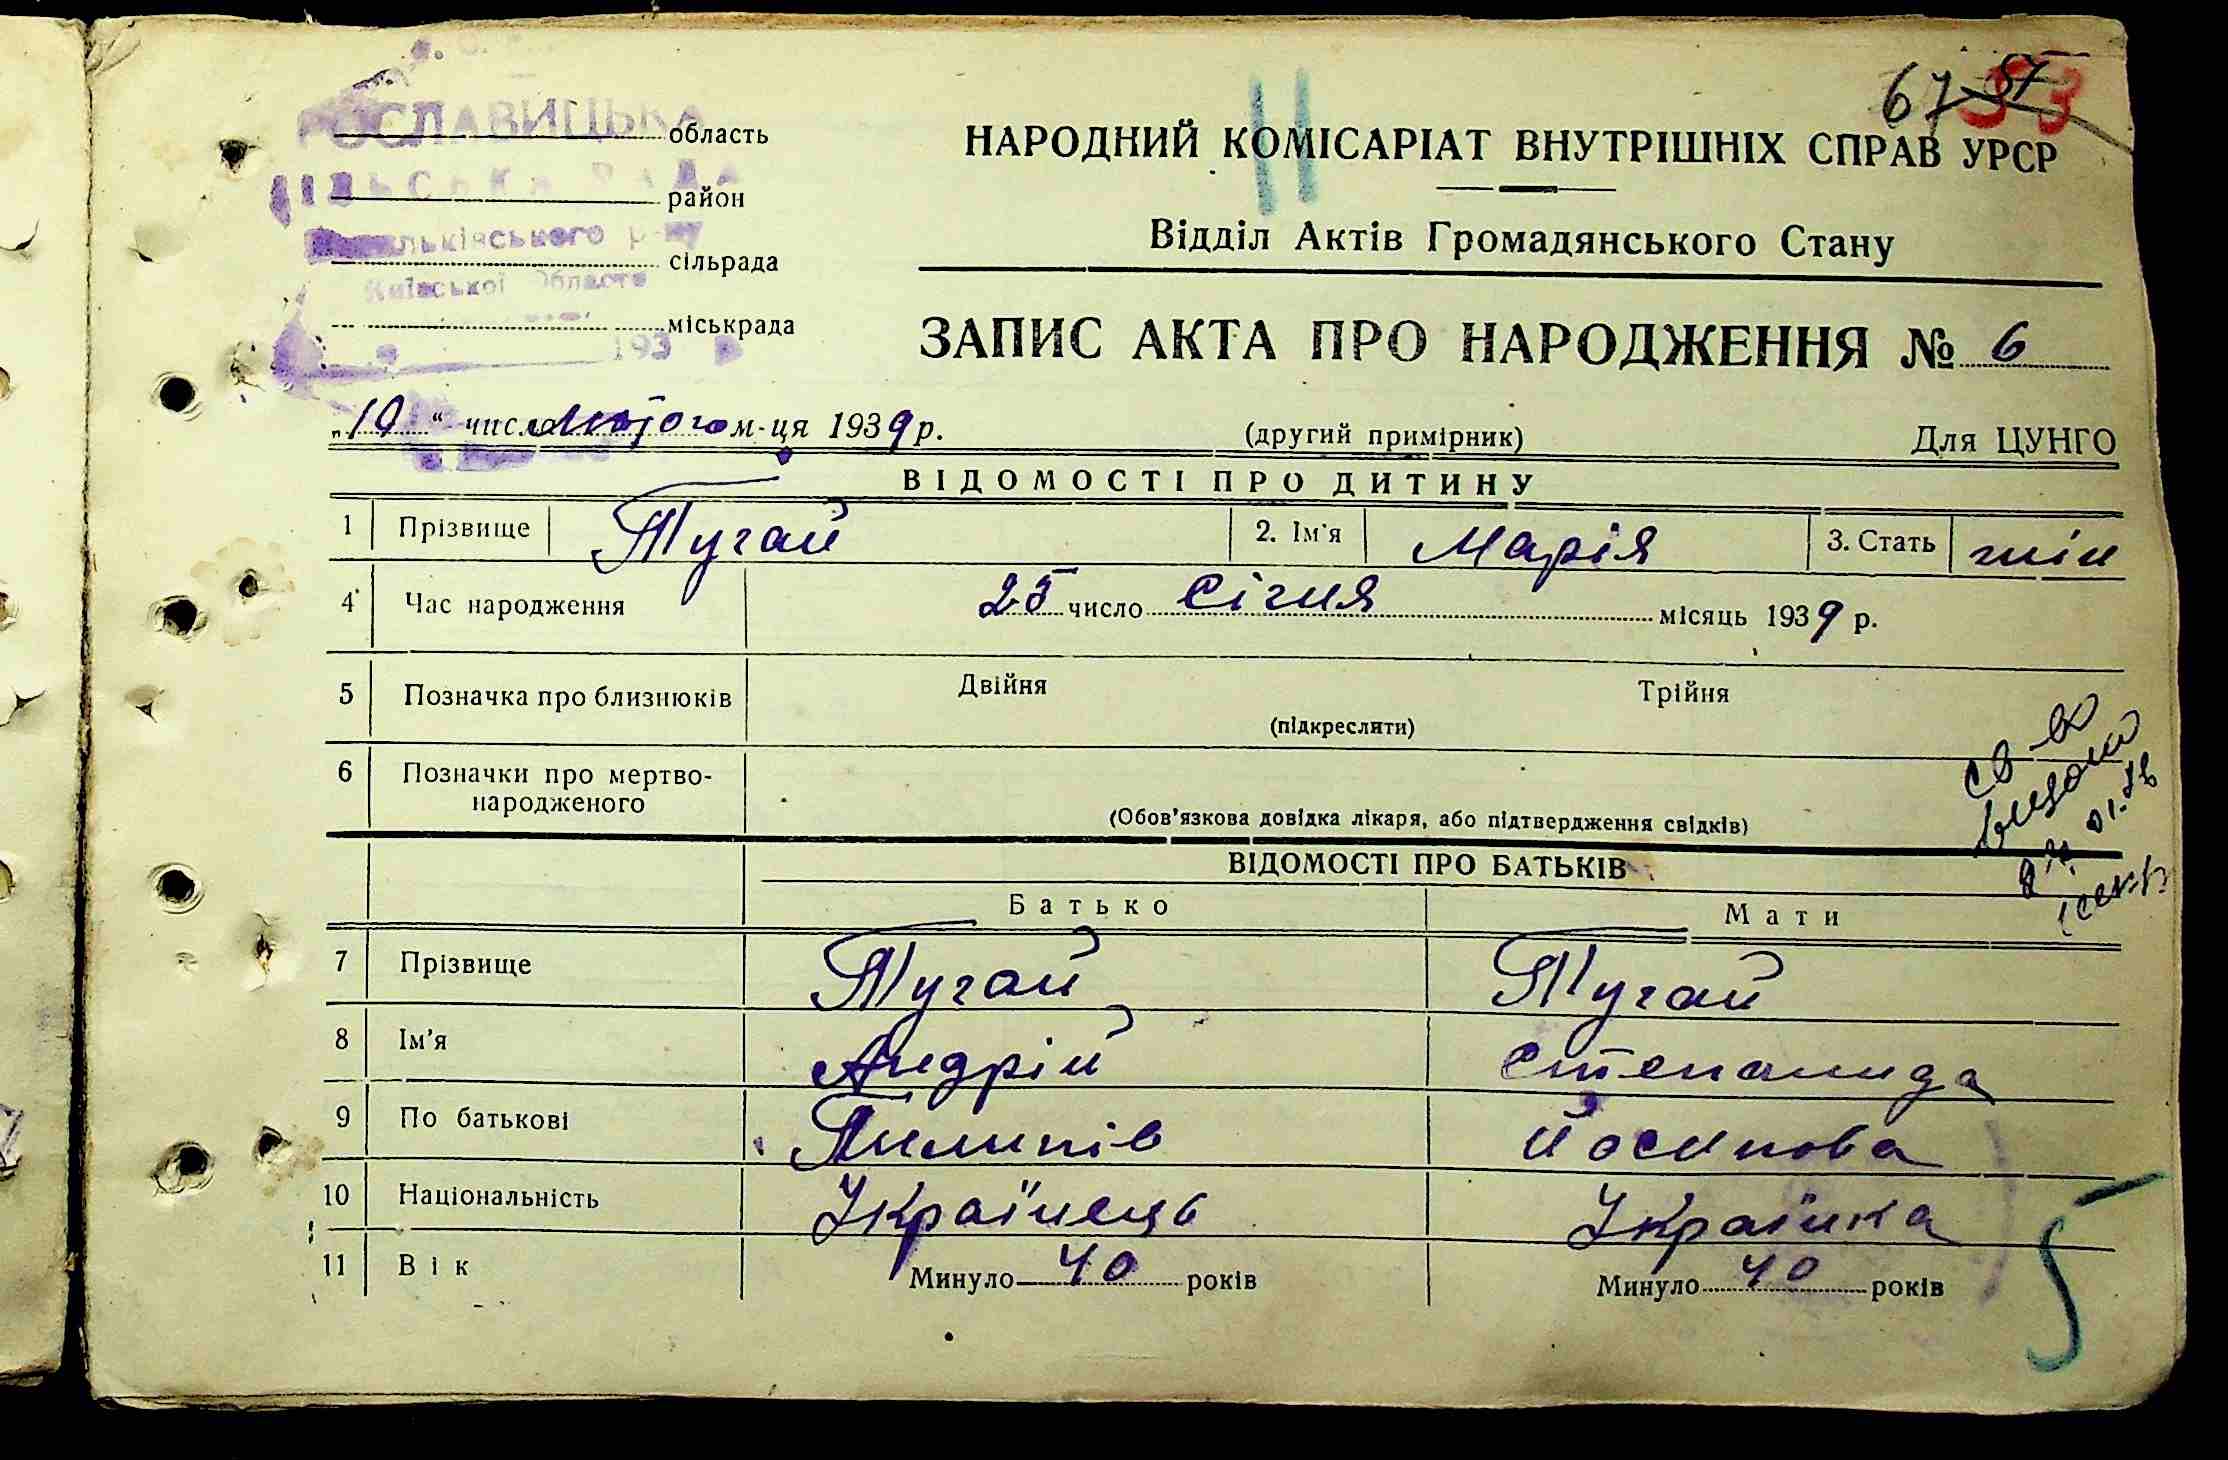 67 57 53
РОСЛАВИЦЬКА область
СІЛЬСЬКА РАДА район
Васильківського р-ну сільрада
Київської Області міськрада
193
НАРОДНИЙ КОМІСАРІАТ ВНУТРІШНІХ СПРАВ УРСР
Відділ Актів Громадянського Стану
ЗАПИС АКТА ПРО НАРОДЖЕННЯ № 6
„10“ число Лютого м-ця 1939 р. (другий примірник) Для ЦУНГО
ВІДОМОСТІ ПРО ДИТИНУ
1 Прізвище Тугай 2. Ім'я Марія 3. Стать жін
4 Час народження 25 число Січня місяць 1939 р.
5 Позначка про близнюків Двійня Трійня
(підкреслити)
6 Позначки про мертво-
народженого
(Обов'язкова довідка лікаря, або підтвердження свідків)
св-во
ВІДОМОСТІ ПРО БАТЬКІВ
Батько Мати
7 Прізвище Тугай Тугай
8 Ім'я Андрій Степанида
9 По батькові Пилипів Йосипова
10 Національність Українець Українка
11 Вік Минуло 40 років Минуло 40 років
5